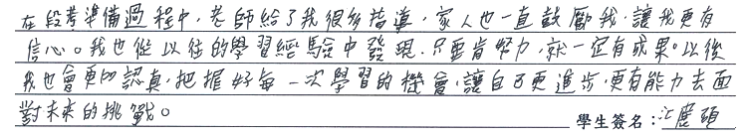 在段考準備過程中，老師給了我很多指導，家人也一直鼓勵我，讓我更有
信心。我也從以往的學習經驗中發現，只要肯努力，就一定有成果。以後
我也會更加認真，把握好每一次學習的機會，讓自己更進步，更有能力去面
對未來的挑戰。
學生簽名：江展碩